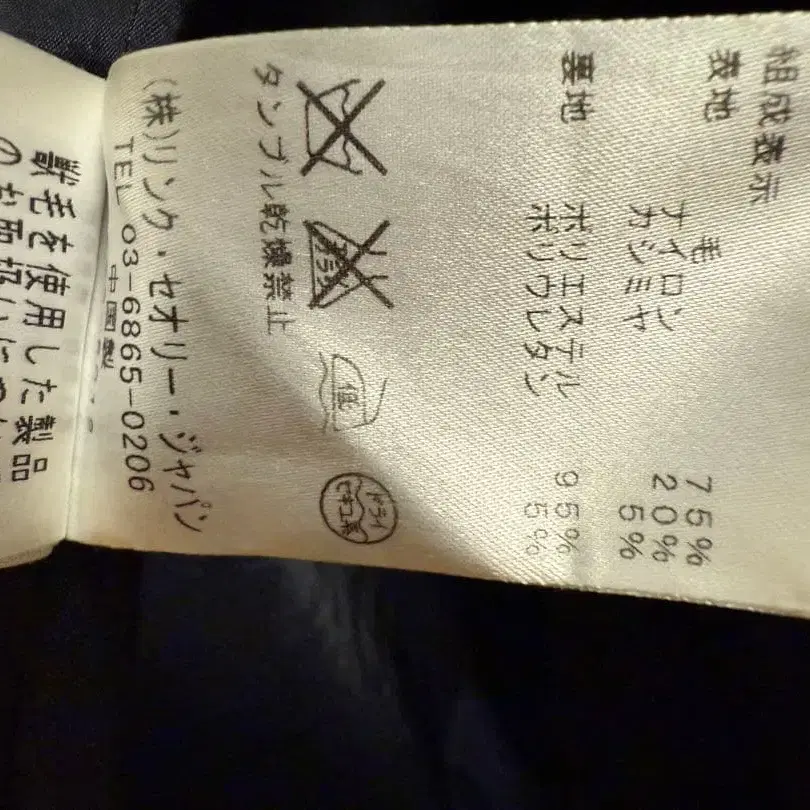 組成表示
表地
毛 75%
ナイロン 20%
カシミヤ 5%
裏地
ポリエステル 95%
ポリウレタン 5%
低
ドライ
セキユ系
タンブル乾燥禁止
(株)リンク・セオリー・ジャパン
TEL 03-6865-0206
中国製
獣毛を使用した製品
のお取扱いに